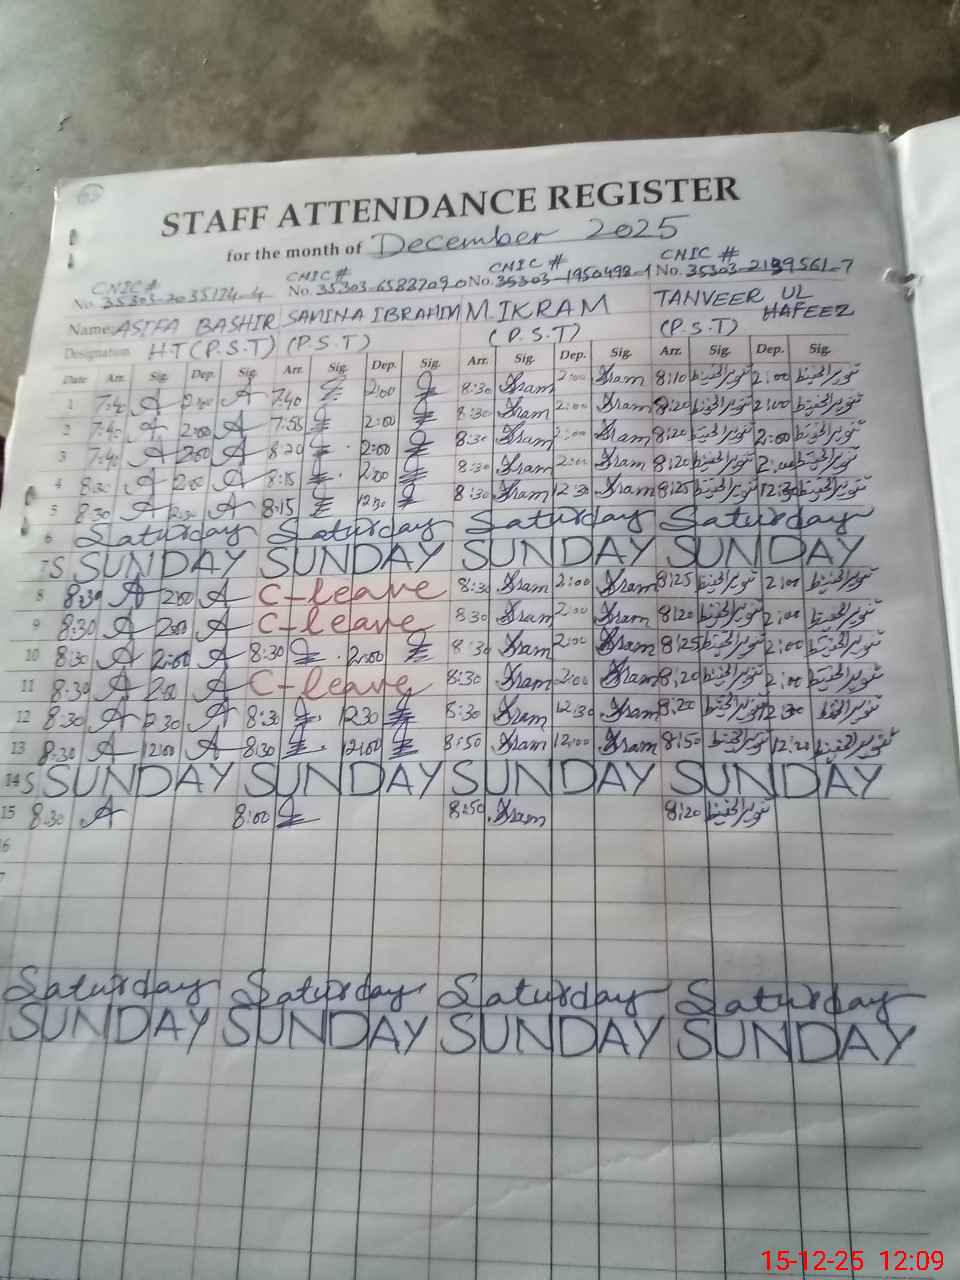 STAFF ATTENDANCE REGISTER
for the month of December 2025
CNIC # CNIC # CNIC # CNIC #
No. 35303-2035174-4 No. 35303-6583709-0 No. 35303-1950498-1 No. 35303-2189561-7
Name: ASIFA BASHIR SAMINA IBRAHIM M. IKRAM TANVEER UL HAFEEZ
Designation H.T (P.S.T) (P.S.T) (P.S.T) (P.S.T)
Date Arr. Sig. Dep. Sig. Arr. Sig. Dep. Sig. Arr. Sig. Dep. Sig. Arr. Sig. Dep. Sig.
1 7:40 A 2:00 A 7:40 2:00 8:30 Ikram 2:00 Ikram 8:10 تنویر الحفیظ 2:00 تنویر الحفیظ
2 7:40 A 2:00 A 7:55 2:00 8:30 Ikram 2:00 Ikram 8:20 تنویر الحفیظ 2:00 تنویر الحفیظ
3 7:40 A 2:00 A 8:20 2:00 8:30 Ikram 2:00 Ikram 8:20 تنویر الحفیظ 2:00 تنویر الحفیظ
4 8:30 A 2:00 A 8:15 2:00 8:30 Ikram 2:00 Ikram 8:20 تنویر الحفیظ 2:00 تنویر الحفیظ
5 8:30 A 12:30 A 8:15 12:30 8:30 Ikram 12:30 Ikram 8:25 تنویر الحفیظ 12:30 تنویر الحفیظ
6 Saturday Saturday Saturday Saturday
7 S SUNDAY SUNDAY SUNDAY SUNDAY
8 8:30 A 2:00 A C-leave 8:30 Ikram 2:00 Ikram 8:25 تنویر الحفیظ 2:00 تنویر الحفیظ
9 8:30 A 2:00 A C-leave 8:30 Ikram 2:00 Ikram 8:20 تنویر الحفیظ 2:00 تنویر الحفیظ
10 8:30 A 2:00 A 8:30 2:00 8:30 Ikram 2:00 Ikram 8:25 تنویر الحفیظ 2:00 تنویر الحفیظ
11 8:30 A 2:00 A C-leave 8:30 Ikram 2:00 Ikram 8:20 تنویر الحفیظ 2:00 تنویر الحفیظ
12 8:30 A 12:30 A 8:30 12:30 8:30 Ikram 12:30 Ikram 8:20 تنویر الحفیظ 12:30 تنویر الحفیظ
13 8:30 A 12:00 A 8:30 12:00 8:50 Ikram 12:00 Ikram 8:50 تنویر الحفیظ 12:20 تنویر الحفیظ
14 S SUNDAY SUNDAY SUNDAY SUNDAY
15 8:30 A 8:00 8:50 Ikram 8:20 تنویر الحفیظ
6
7
Saturday Saturday Saturday Saturday
SUNDAY SUNDAY SUNDAY SUNDAY
15-12-25 12:09